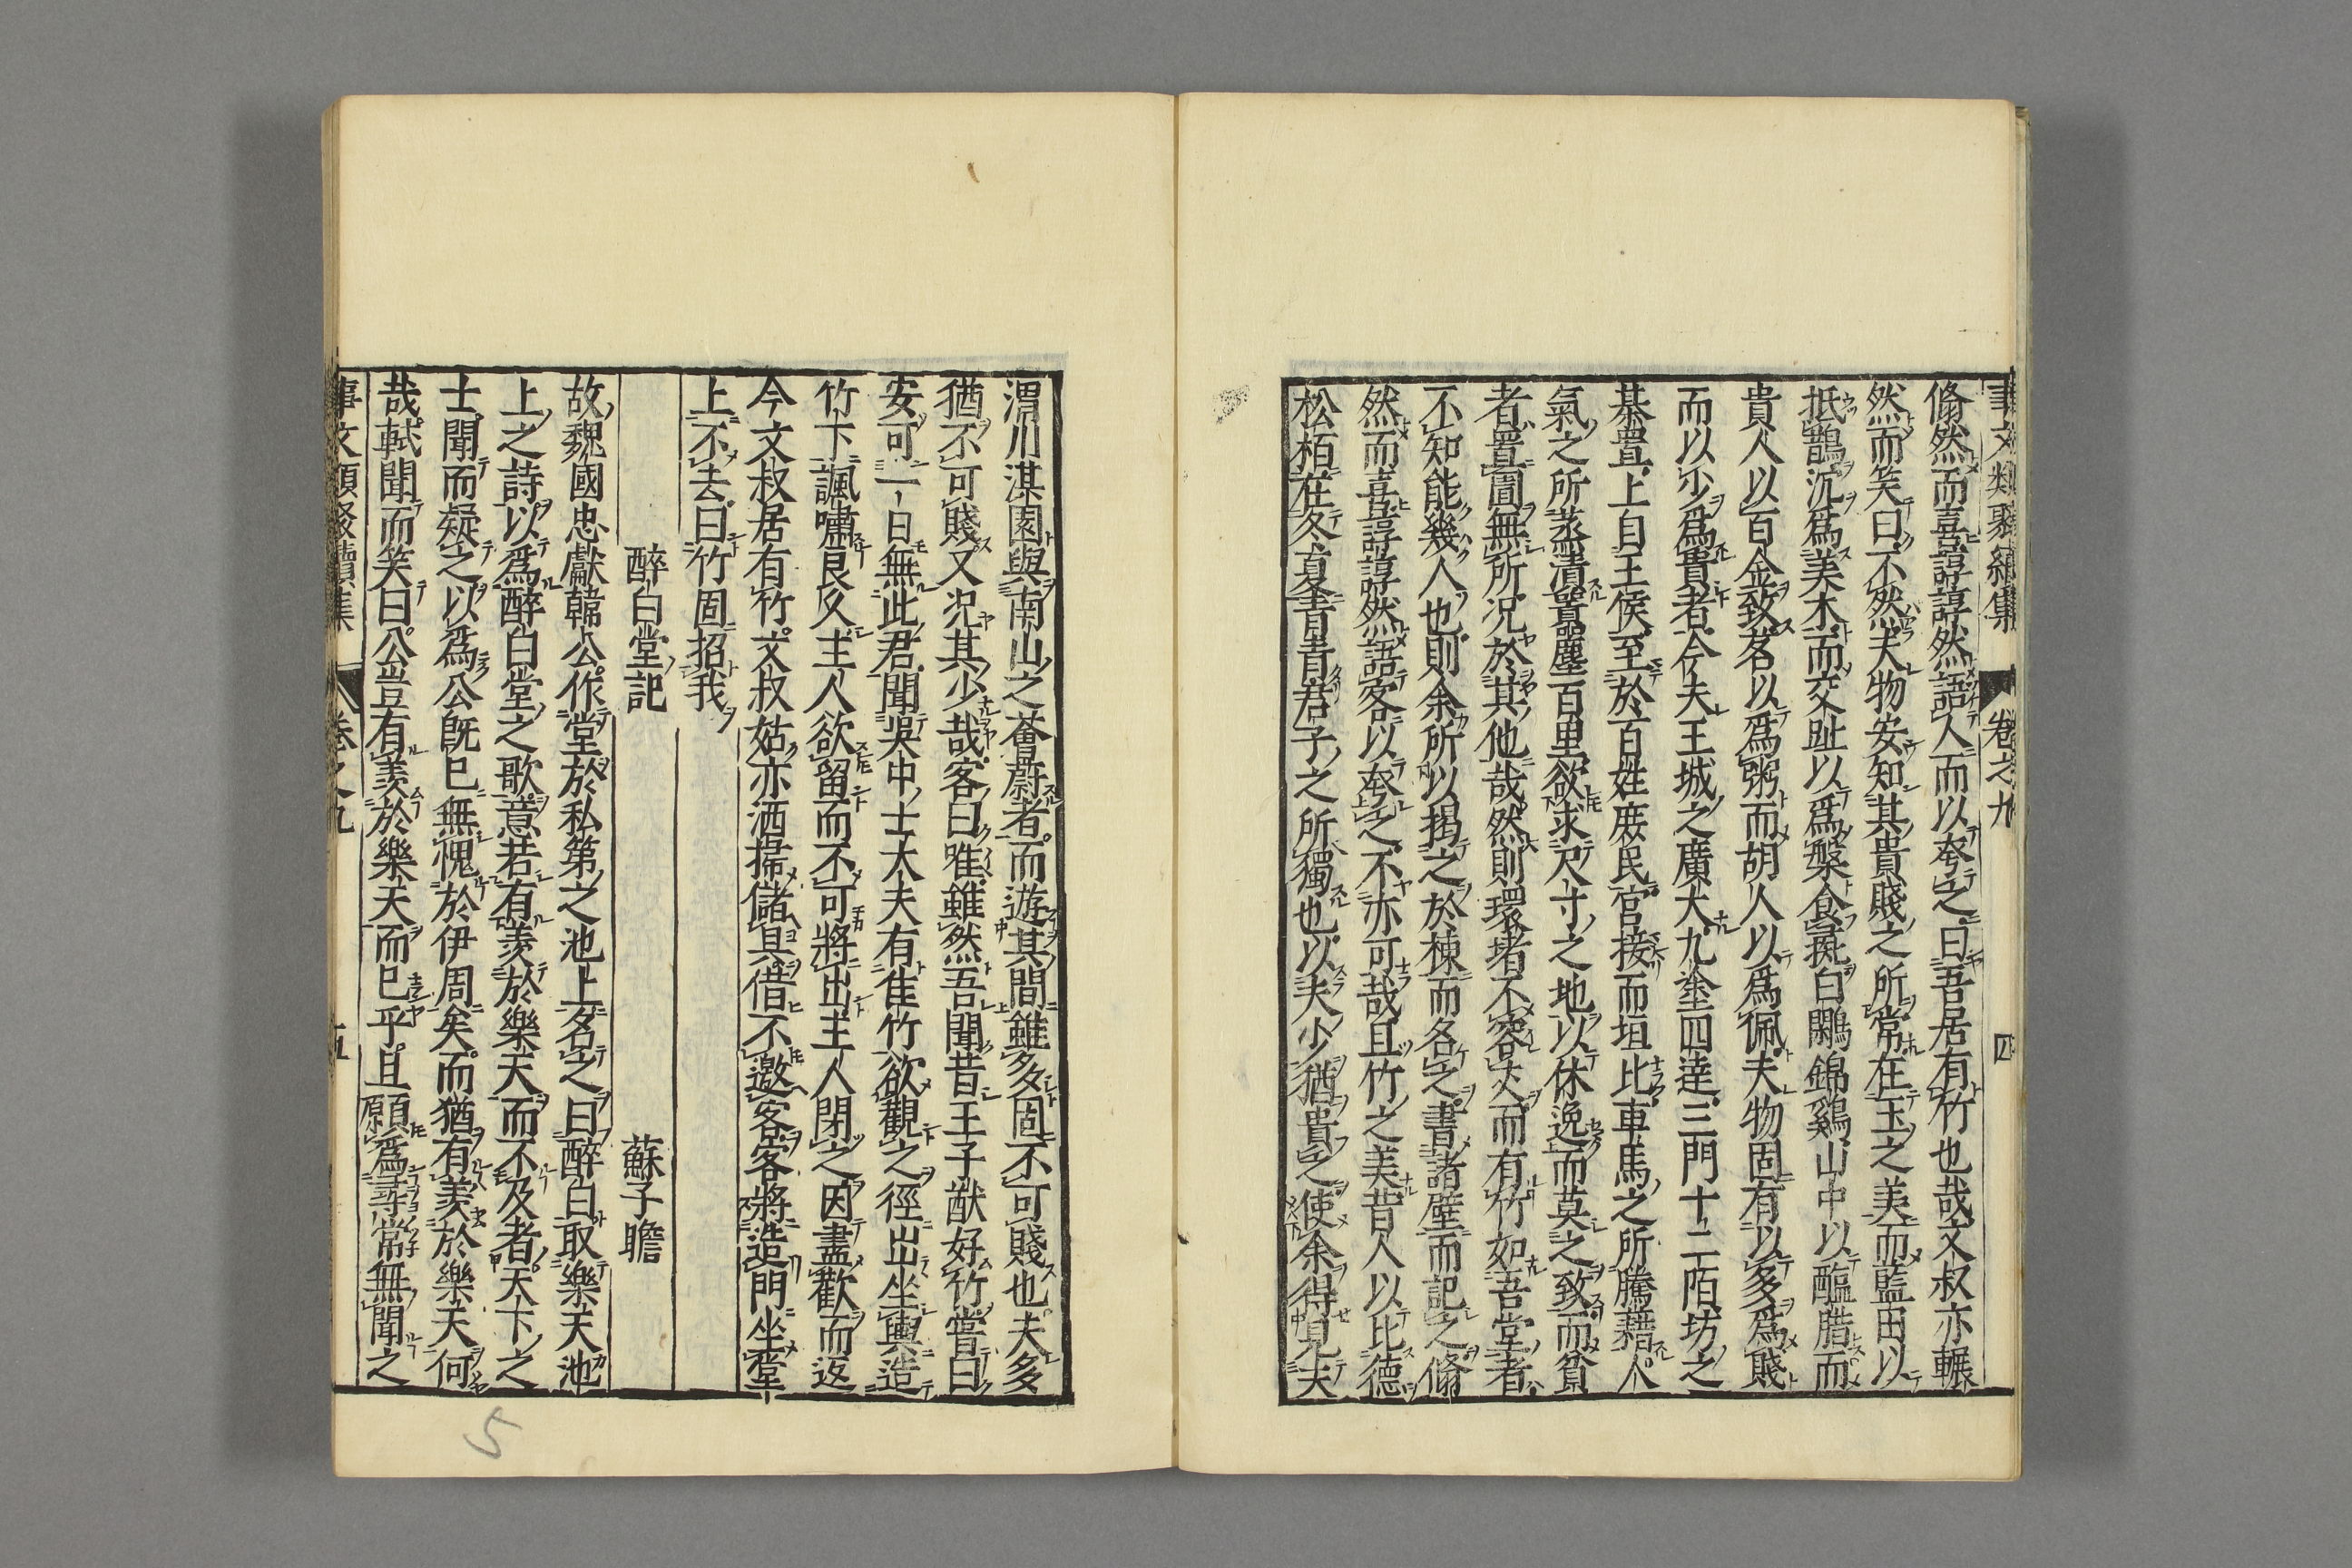 事文類聚續集　卷之九　四
翛然而喜諄諄然語人而以夸之曰吾居有竹也哉文叔亦輾
然而笑曰不然夫物安知其貴賤之所常在玉之美而藍田以
抵鵲沉爲美木而交趾以爲槃食㨽白鷴錦鷄山中以醢腊而
貴人以百金致茗以爲粥而胡人以爲佩夫物固有以多爲賤
而以少爲貴者今夫王城之廣大九塗四達三門十二陌坊之
棊置上自王侯至於百姓庶民官接而垣比車馬之所騰藉人
氣之所蒸漬囂塵百里欲求尺寸之地以休逸而莫之致而貧
者置圊無所况於其他哉然則環堵不容丈而有竹如吾堂者
不知能幾人也則余所以揭之於棟而名之書諸壁而記之翛
然而喜諄諄然語客以夸之不亦可哉且竹之美昔人以比德
松栢在冬夏青青君子之所獨也以夫少猶貴之使余得見夫
渭川淇園與南山之薈蔚者而遊其間雖多固不可賤也夫多
猶不可賤又况其少哉客曰唯雖然吾聞昔王子猷好竹嘗曰
安可一日無此君聞吳中士大夫有佳竹欲觀之徑出坐輿造
竹下諷嘯良久主人欲留而不可將出主人閉之因盡歡而返
今文叔居有竹文叔姑亦洒掃儲具借不邀客客將造門坐堂
上不去曰竹固招我
醉白堂記　蘇子瞻
故魏國忠獻韓公作堂於私第之池上名之曰醉白取樂天池
上之詩以爲醉白堂之歌意若有羡於樂天而不及者天下之
士聞而疑之以爲公旣已無愧於伊周矣而猶有羡於樂天何
哉軾聞而笑曰公豈有羡於樂天而已乎且願爲尋常無聞之
事文類聚續集　卷之九　五
5